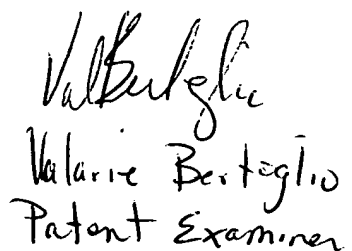 Val Bertoglio
Valarie Bertoglio
Patent Examiner